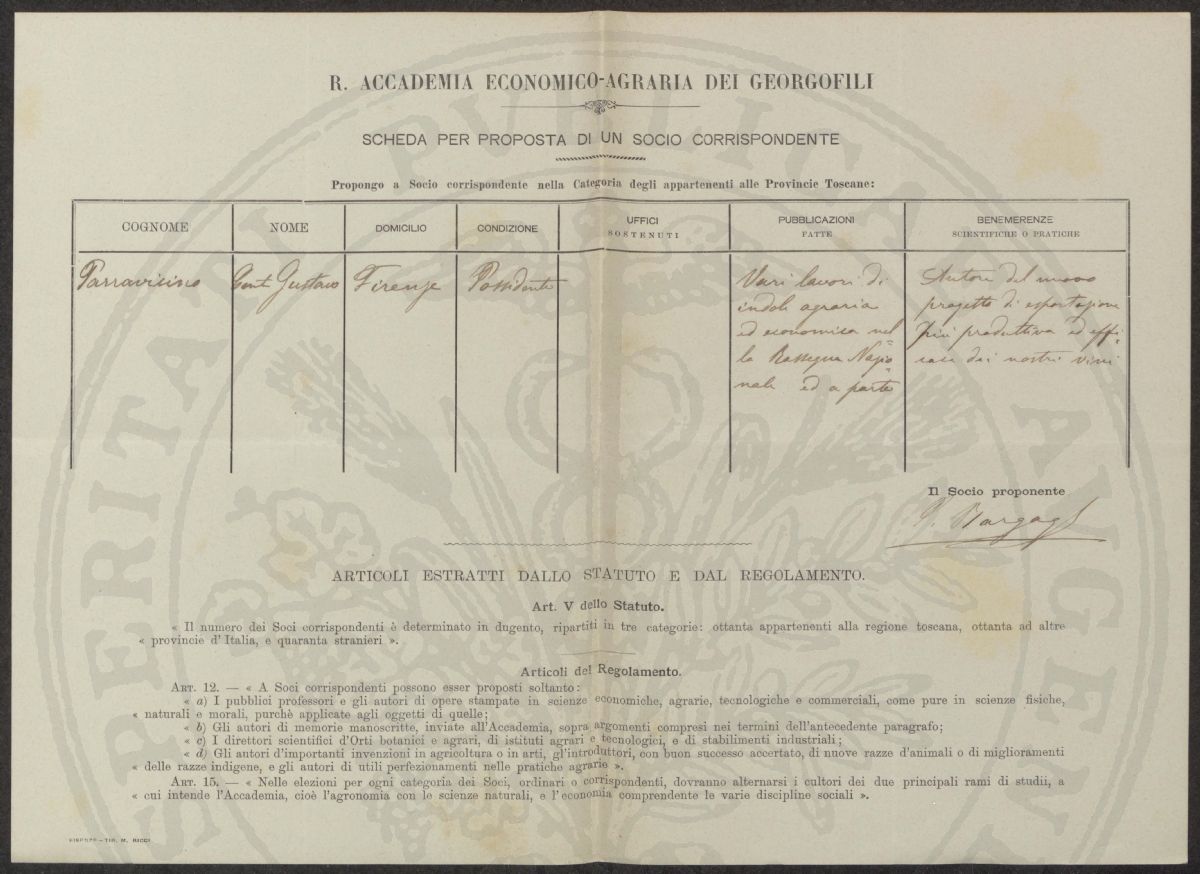 R. ACCADEMIA ECONOMICO-AGRARIA DEI GEORGOFILI
SCHEDA PER PROPOSTA DI UN SOCIO CORRISPONDENTE
Propongo a Socio corrispondente nella Categoria degli appartenenti alle Provincie Toscane:
COGNOME
NOME
DOMICILIO
CONDIZIONE
UFFICI
SOSTENUTI
PUBBLICAZIONI
FATTE
BENEMERENZE
SCIENTIFICHE O PRATICHE
Parravicino
Gustavo
Firenze
Possidente
Vari lavori di
indole agraria
ed economica nel
la Rassegna Nazio
nale ed a parte
Autore del nuovo
progetto di esportazione
più produttiva ed effi
cace dei nostri vini
Il Socio proponente
P. Bargagli
ARTICOLI ESTRATTI DALLO STATUTO E DAL REGOLAMENTO.
Art. V dello Statuto.
« Il numero dei Soci corrispondenti è determinato in dugento, ripartiti in tre categorie: ottanta appartenenti alla regione toscana, ottanta ad altre
« provincie d' Italia, e quaranta stranieri ».
Articoli del Regolamento.
ART. 12. — « A Soci corrispondenti possono esser proposti soltanto:
« a) I pubblici professori e gli autori di opere stampate in scienze economiche, agrarie, tecnologiche e commerciali, come pure in scienze fisiche,
« naturali e morali, purchè applicate agli oggetti di quelle;
« b) Gli autori di memorie manoscritte, inviate all'Accademia, sopra argomenti compresi nei termini dell'antecedente paragrafo;
« c) I direttori scientifici d'Orti botanici e agrari, di istituti agrari e tecnologici, e di stabilimenti industriali;
« d) Gli autori d'importanti invenzioni in agricoltura o in arti, gl'introduttori, con buon successo accertato, di nuove razze d'animali o di miglioramenti
« delle razze indigene, e gli autori di utili perfezionamenti nelle pratiche agrarie ».
ART. 15. — « Nelle elezioni per ogni categoria dei Soci, ordinari o corrispondenti, dovranno alternarsi i cultori dei due principali rami di studii, a
« cui intende l'Accademia, cioè l'agronomia con le scienze naturali, e l'economia comprendente le varie discipline sociali ».
FIRENZE – TIP. M. RICCI